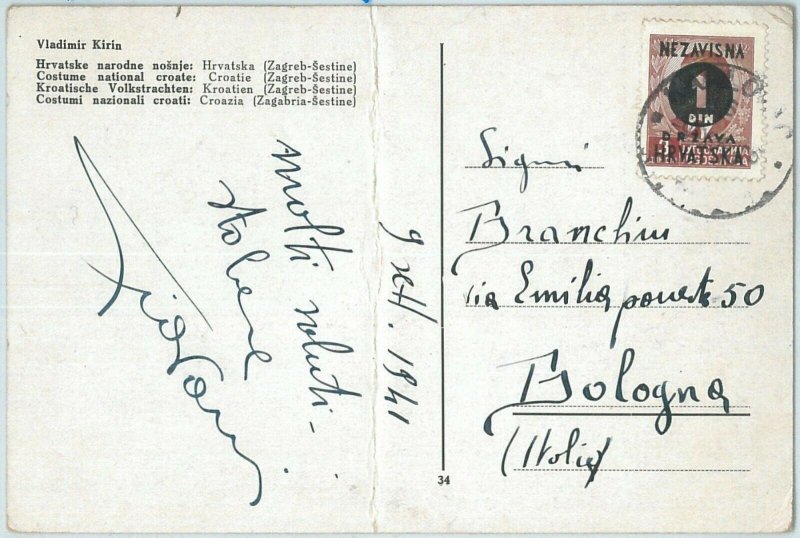 Vladimir Kirin
Hrvatske narodne nošnje: Hrvatska (Zagreb-Šestine)
Costume national croate: Croatie (Zagreb-Šestine)
Kroatische Volkstrachten: Kroatien (Zagreb-Šestine)
Costumi nazionali croati: Croazia (Zagabria-Šestine)
molti saluti
sto bene
9 sett. 1941
34
NEZAVISNA
1
DIN
DRŽAVA
HRVATSKA
Signori
Branchini
via Emilia ponente 50
Bologna
(Italia)